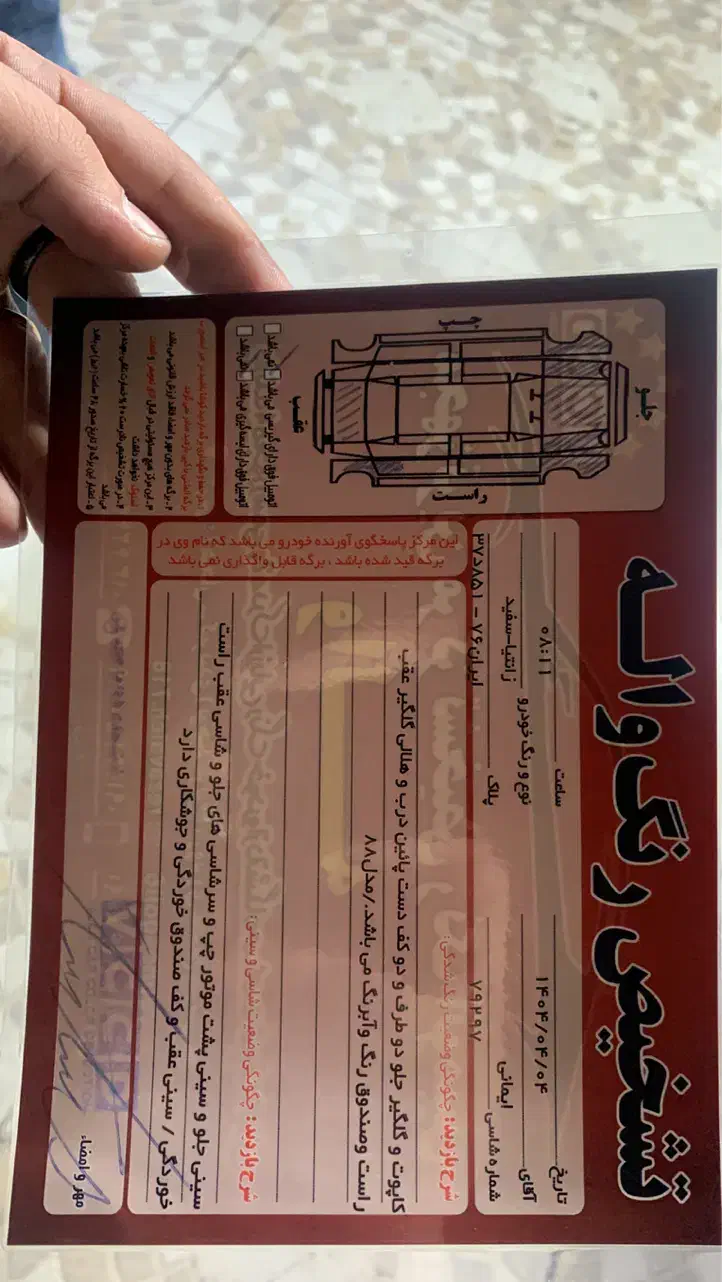 تشخیص رنگ واله
تاریخ ۱۴۰۴/۰۴/۰۴
ساعت ۰۸:۱۱
آقای ایمانی
نوع و رنگ خودرو زانتیا-سفید
شماره شاسی ۷۹۲۹۷
پلاک ایران۷۶ - ۸۵۱د۳۷
شرح بازدید: چگونگی وضعیت رنگ شدگی:
کاپوت و گلگیر جلو دو طرف و دو کف دست پائین درب و هلالی گلگیر عقب
راست وصندوق رنگ وآبرنگ می باشد./مدل۸۸
شرح بازدید: چگونگی وضعیت شاسی و سینی:
سینی جلو و سینی پشت موتور چپ و سرشاسی های جلو و شاسی عقب راست
خوردگی / سینی عقب و کف صندوق خوردگی و جوشکاری دارد
مهر و امضاء
جلو
چپ
راست
عقب
این مرکز پاسخگوی آورنده خودرو می باشد که نام وی در
برگه قید شده باشد ، برگه قابل واگذاری نمی باشد